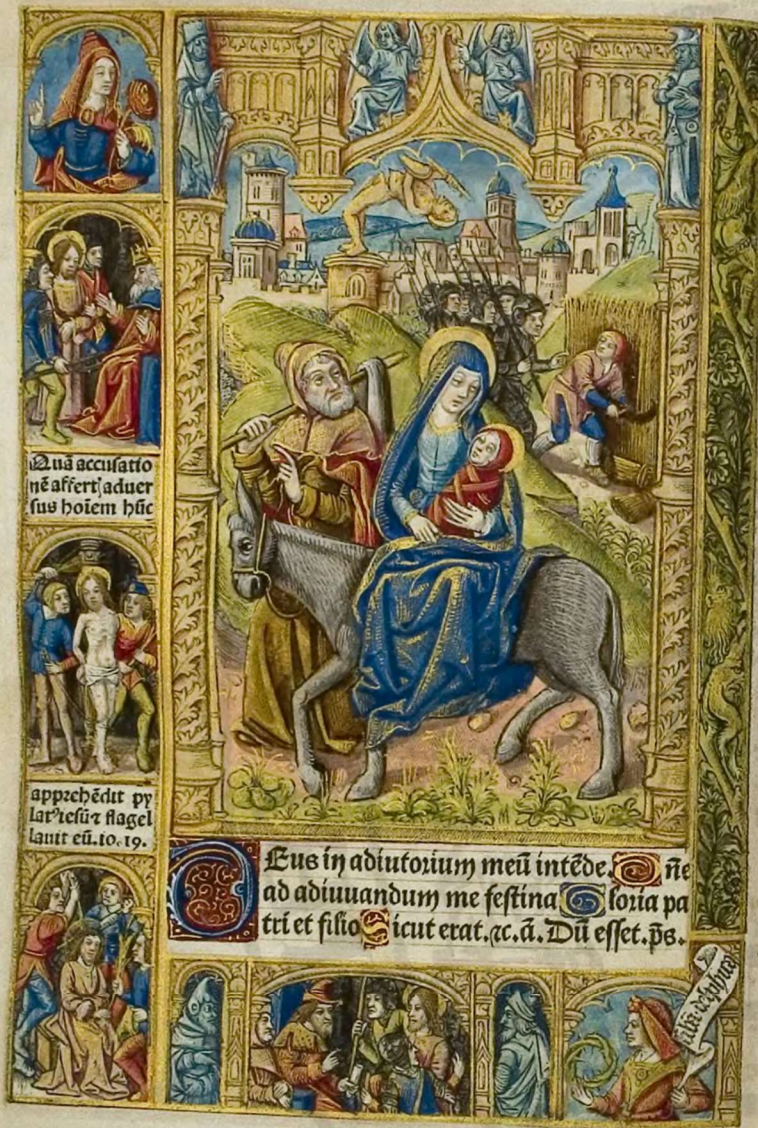 Quā accusatio
nē affert̉ aduer
sus hoīem hūc
apprehēdit py
latꝰ iesū ⁊ flagel
lauit eū.io.19.
DEus in adiutorium meū intēde. Dñe
ad adiuuandum me festina Gloria pa
tri et filio Sicut erat.⁊c.ā. Dū esset.ps.